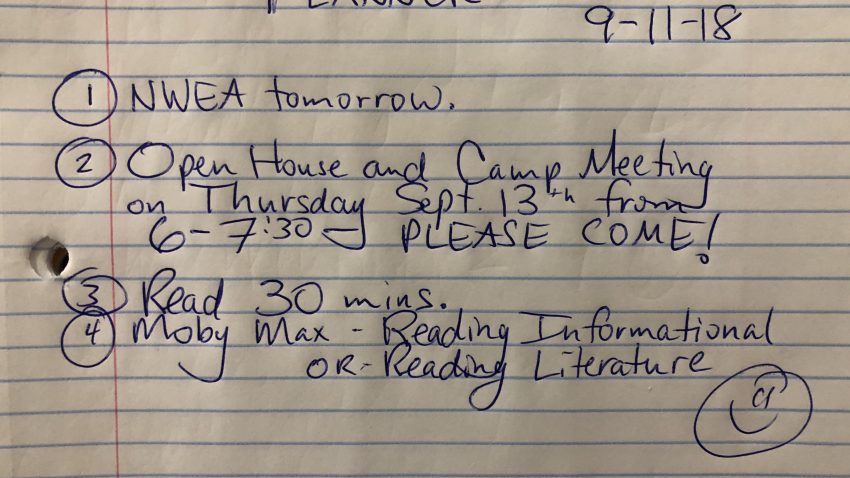 PLANNER
9-11-18
1 NWEA tomorrow.
2 Open House and Camp Meeting
on Thursday Sept. 13th from
6-7:30 - PLEASE COME!
3 Read 30 mins.
4 Moby Max - Reading Informational
OR - Reading Literature